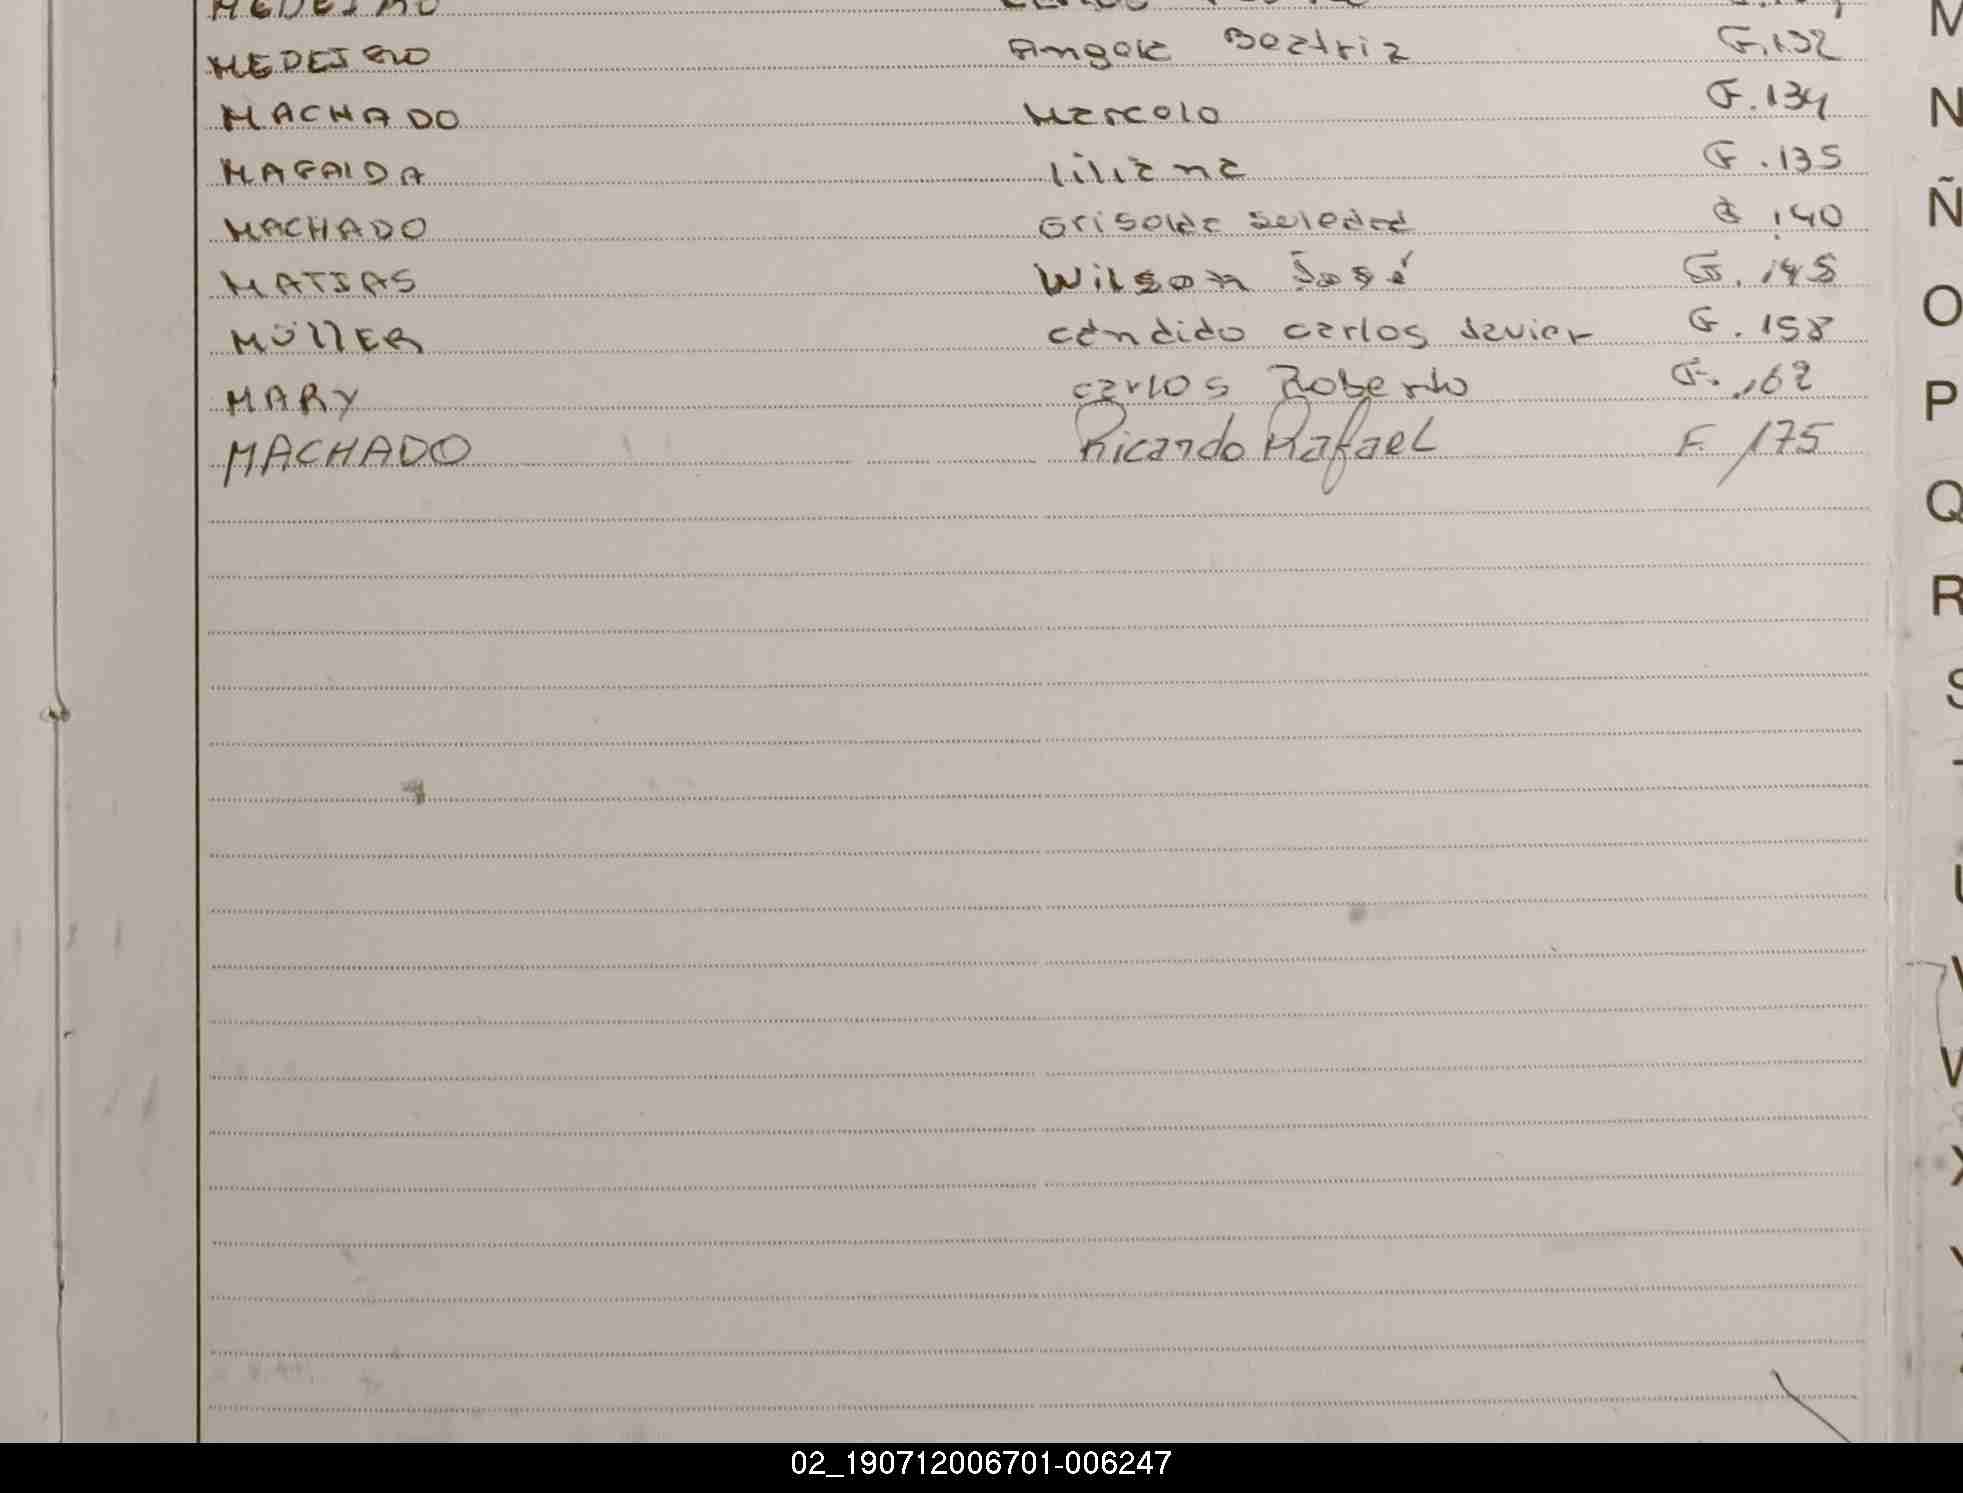 MEDEIRO Angela Beatriz F.132
MACHADO Marcelo F.134
MAFALDA liliana F.135
MACHADO Griselda Soledad F.140
MATIAS Wilson José F.145
MÜllER cándido carlos Javier F.158
MARY carlos Roberto F.162
MACHADO Ricardo Rafael F. 175
M
N
Ñ
O
P
Q
R
S
T
U
V
W
X
Y
02_190712006701-006247